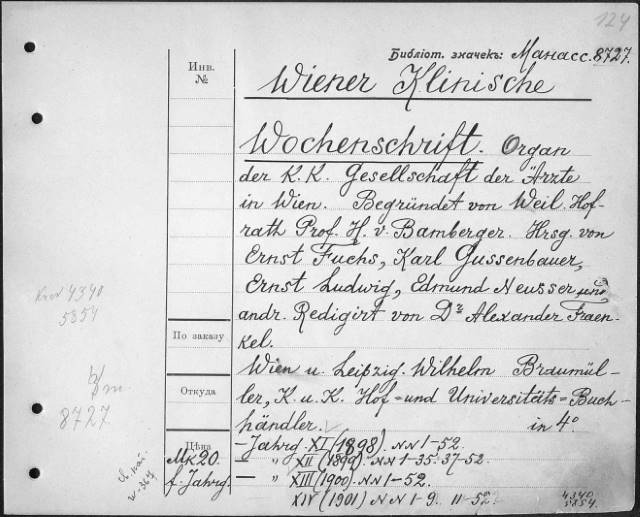 124
Библіот. значекъ: Манасс. 8727.
Инв.
№
Wiener Klinische
Wochenschrift. Organ
der K. K. Gesellschaft der Ärzte
in Wien. Begründet von Weil. Hof-
rath Prof. H. v. Bamberger. Hrsg. von
Ernst Fuchs, Karl Gussenbauer,
Ernst Ludwig, Edmund Neusser und
andr. Redigirt von Dr Alexander Fraen-
kel.
4340
5354
По заказу
Wien u. Leipzig. Wilhelm Braumül-
ler, K. u. K. Hof- und Universitäts-Buch-
händler. in 4°
Откуда
8727
Цѣна
Mk 20.
f. Jahrg.
– Jahrg. XI (1898). NN 1-52.
– " XII (1899). NN 1-35. 37-52
– " XIII (1900). NN 1-52.
XIV (1901) NN 1-9. 11-52.
4340
5354.